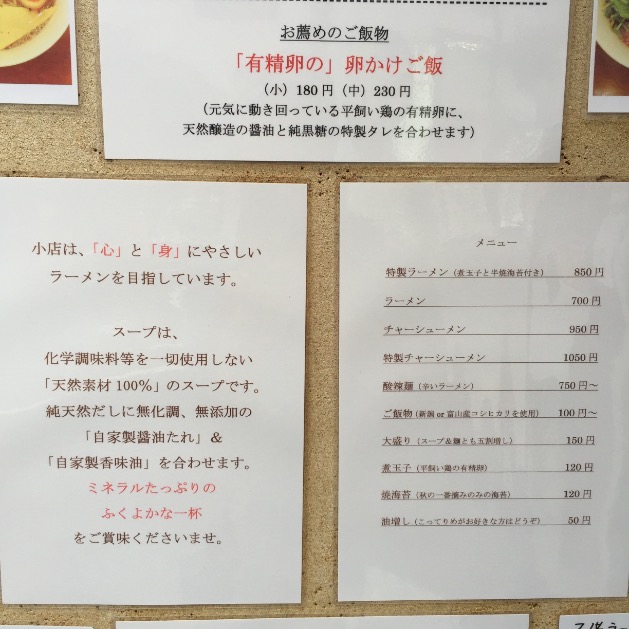 お薦めのご飯物
「有精卵の」卵かけご飯
（小）180円（中）230円
（元気に動き回っている平飼い鶏の有精卵に、
天然醸造の醤油と純黒糖の特製タレを合わせます）
小店は、「心」と「身」にやさしい
ラーメンを目指しています。
スープは、
化学調味料等を一切使用しない
「天然素材100%」のスープです。
純天然だしに無化調、無添加の
「自家製醤油たれ」＆
「自家製香味油」を合わせます。
ミネラルたっぷりの
ふくよかな一杯
をご賞味くださいませ。
メニュー
特製ラーメン（煮玉子と半焼海苔付き） 850円
ラーメン 700円
チャーシューメン 950円
特製チャーシューメン 1050円
酸辣麺（辛いラーメン） 750円～
ご飯物（新潟or富山産コシヒカリを使用） 100円～
大盛り（スープ＆麺とも五割増し） 150円
煮玉子（平飼い鶏の有精卵） 120円
焼海苔（秋の一番摘みのみの海苔） 120円
油増し（こってりめがお好きな方はどうぞ） 50円